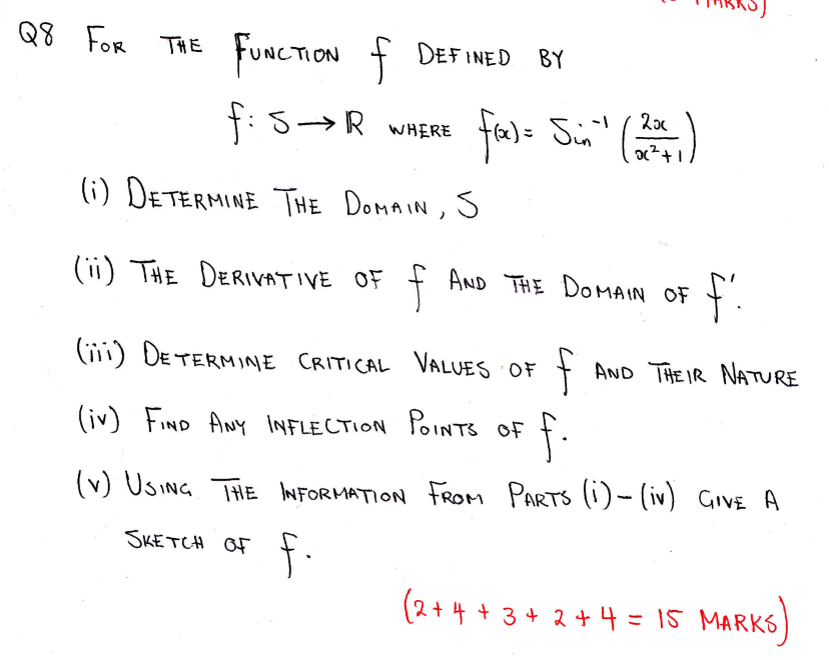 MARKS)
Q8 FOR THE FUNCTION f DEFINED BY
f: S → R WHERE f(x) = Sin⁻¹ (2x / x²+1)
(i) DETERMINE THE DOMAIN, S
(ii) THE DERIVATIVE OF f AND THE DOMAIN OF f'.
(iii) DETERMINE CRITICAL VALUES OF f AND THEIR NATURE
(iv) FIND ANY INFLECTION POINTS OF f.
(v) USING THE INFORMATION FROM PARTS (i) - (iv) GIVE A
SKETCH OF f.
(2 + 4 + 3 + 2 + 4 = 15 MARKS)